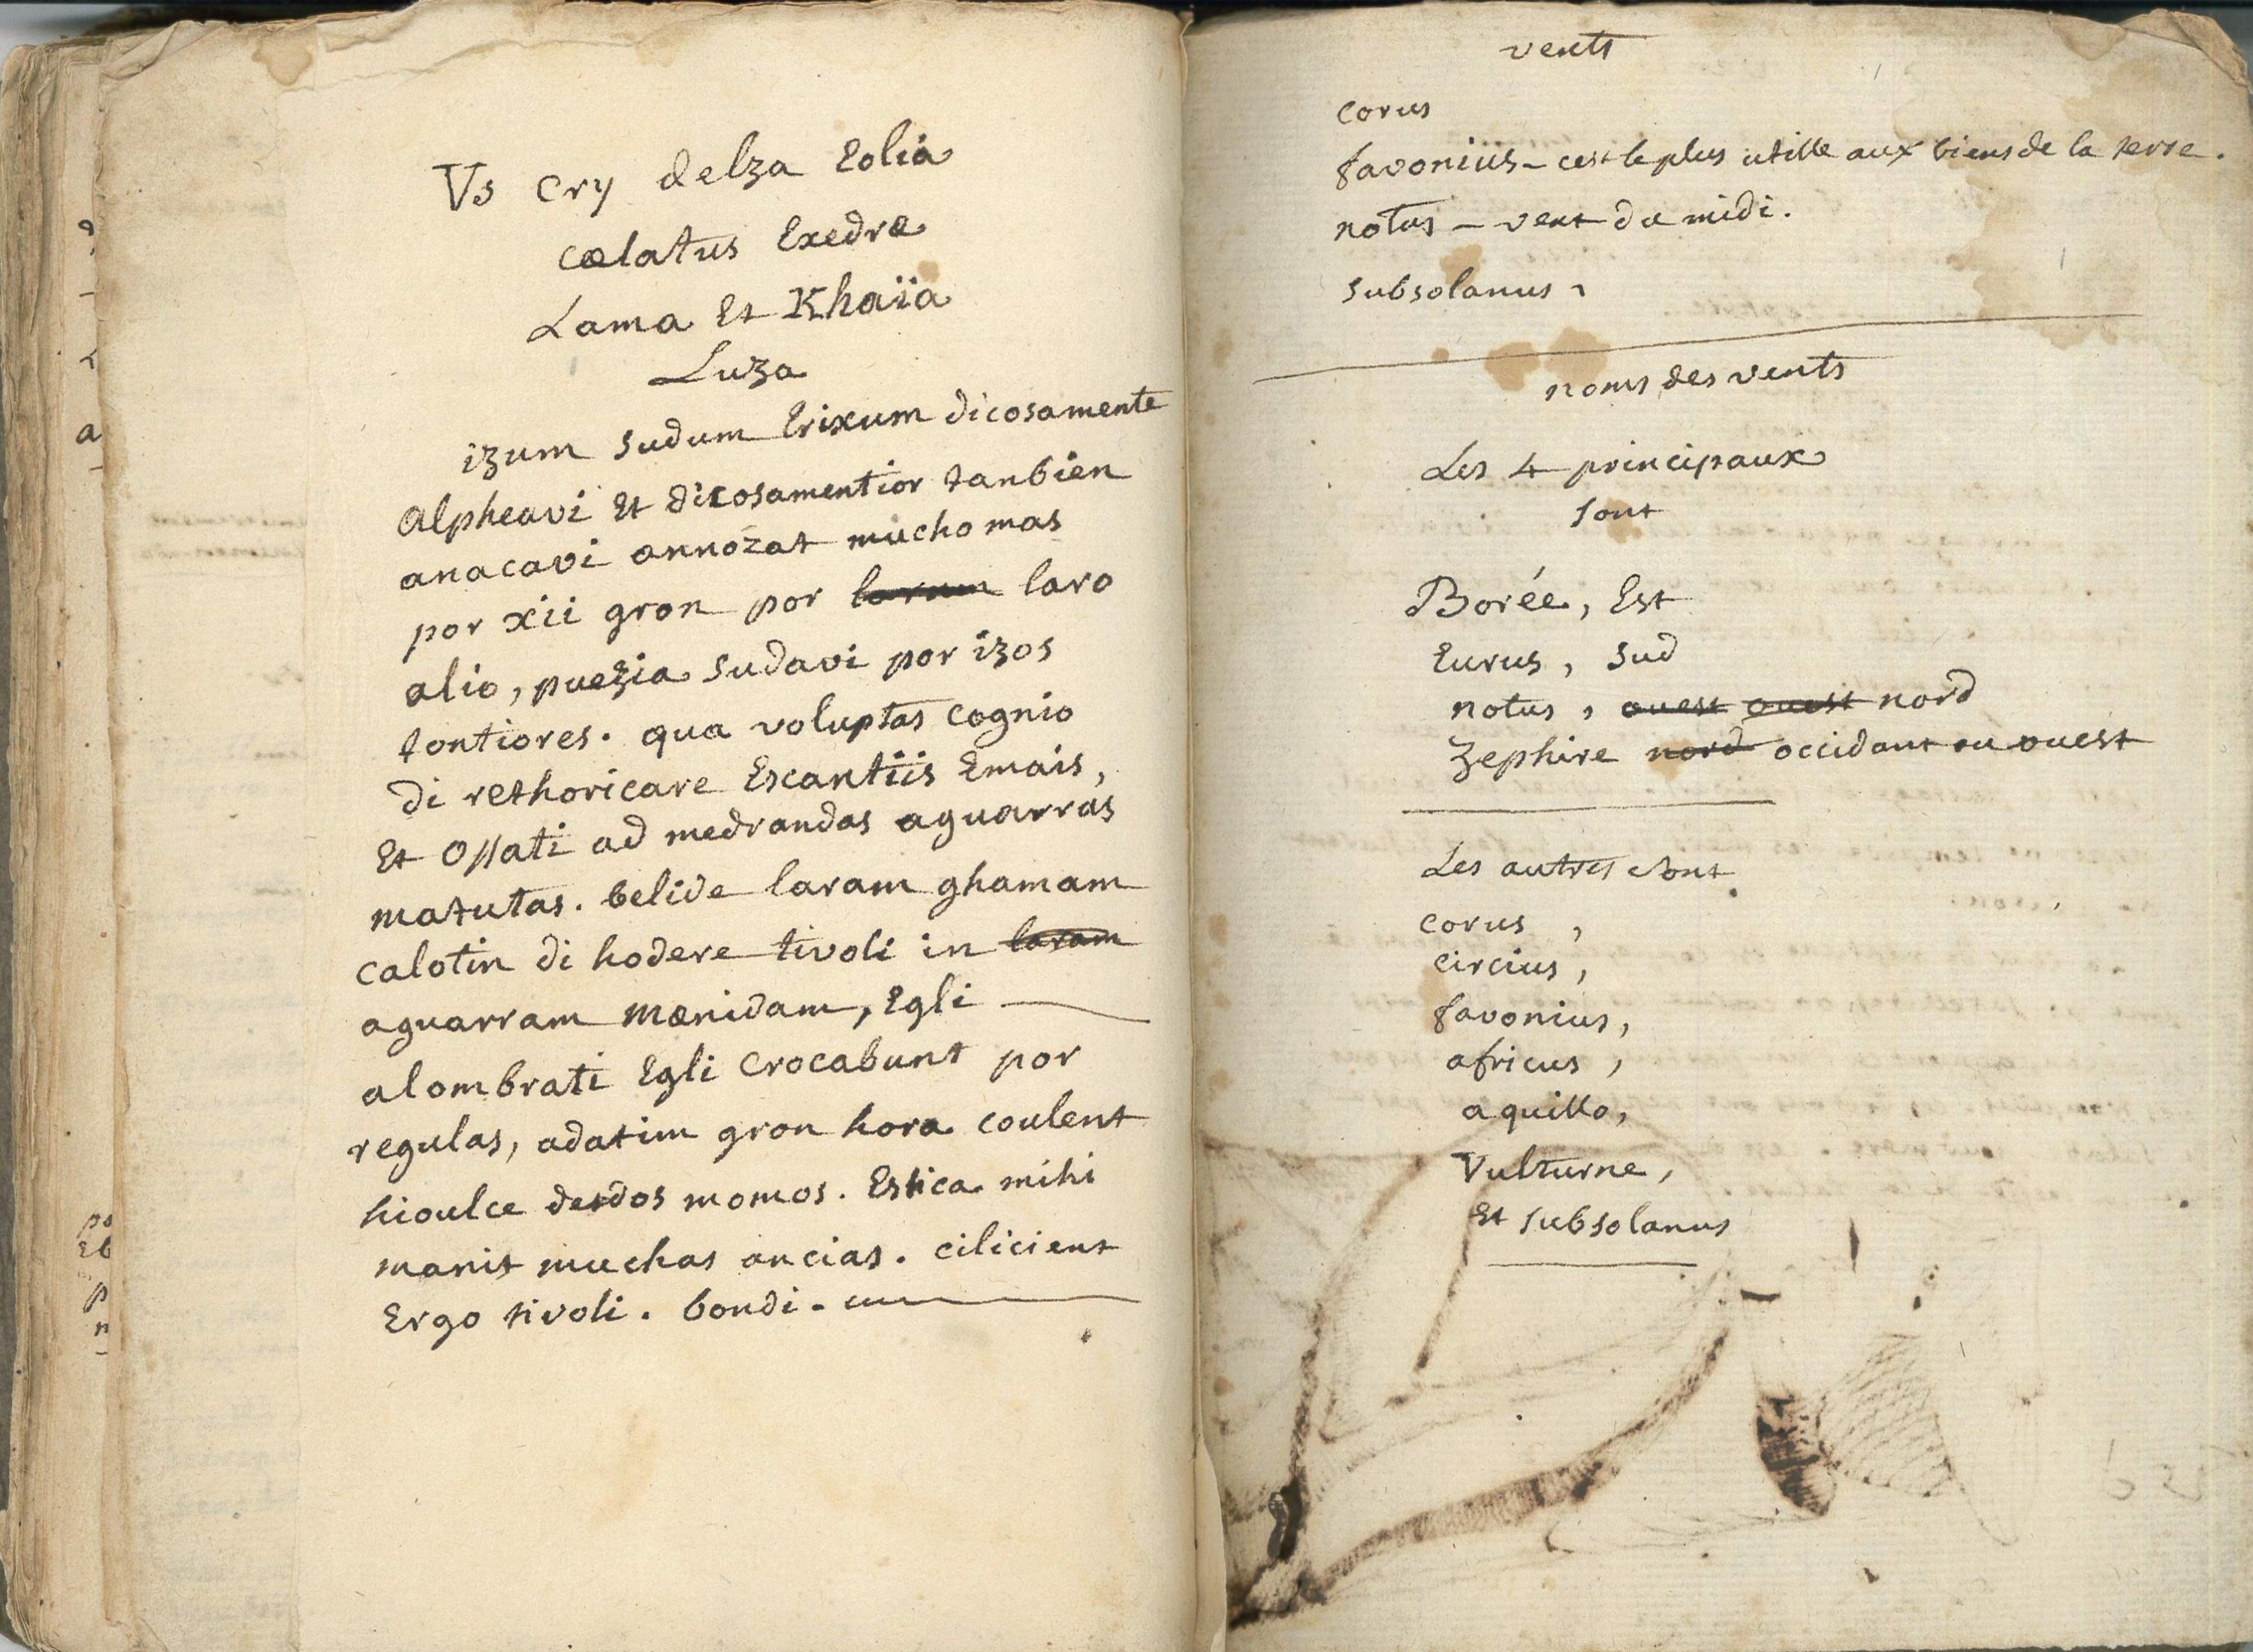 Vs Cry delza Eolia
cælatus Exedra
Lama Et Khaïa
Luza
izum sudum Erixum dicosamente
alpheavi Et dicosamentior tanbien
anacavi annozat mucho mas
por xii gron por larum laro
alio, puezia sudavi por izos
tontiores. qua voluptas cognio
di rethoricare Escantiis Emais,
Et ossati ad medrandas aguarras
matutas. belide laram ghamam
calotin di hodere tivoli in laram
aguarram mænidam, Egli
alombrati Egli crocabunt por
regulas, adatim gron hora coulent
hioulce desdos momos. Estica mihi
manit muchas ancias. ciliciens
Ergo tivoli. bondi.
vents
corus
favonius - cest le plus utille aux biens de la terre.
notus - vent du midi.
subsolanus
noms des vents
Les 4 principaux
sont
Borée, Est
Eurus, sud
notus, ouest ouest nord
Zephire nord occidant ou ouest
Les autres sont
corus,
circius,
favonius,
africus,
aquillo,
Vulturne,
Et subsolanus